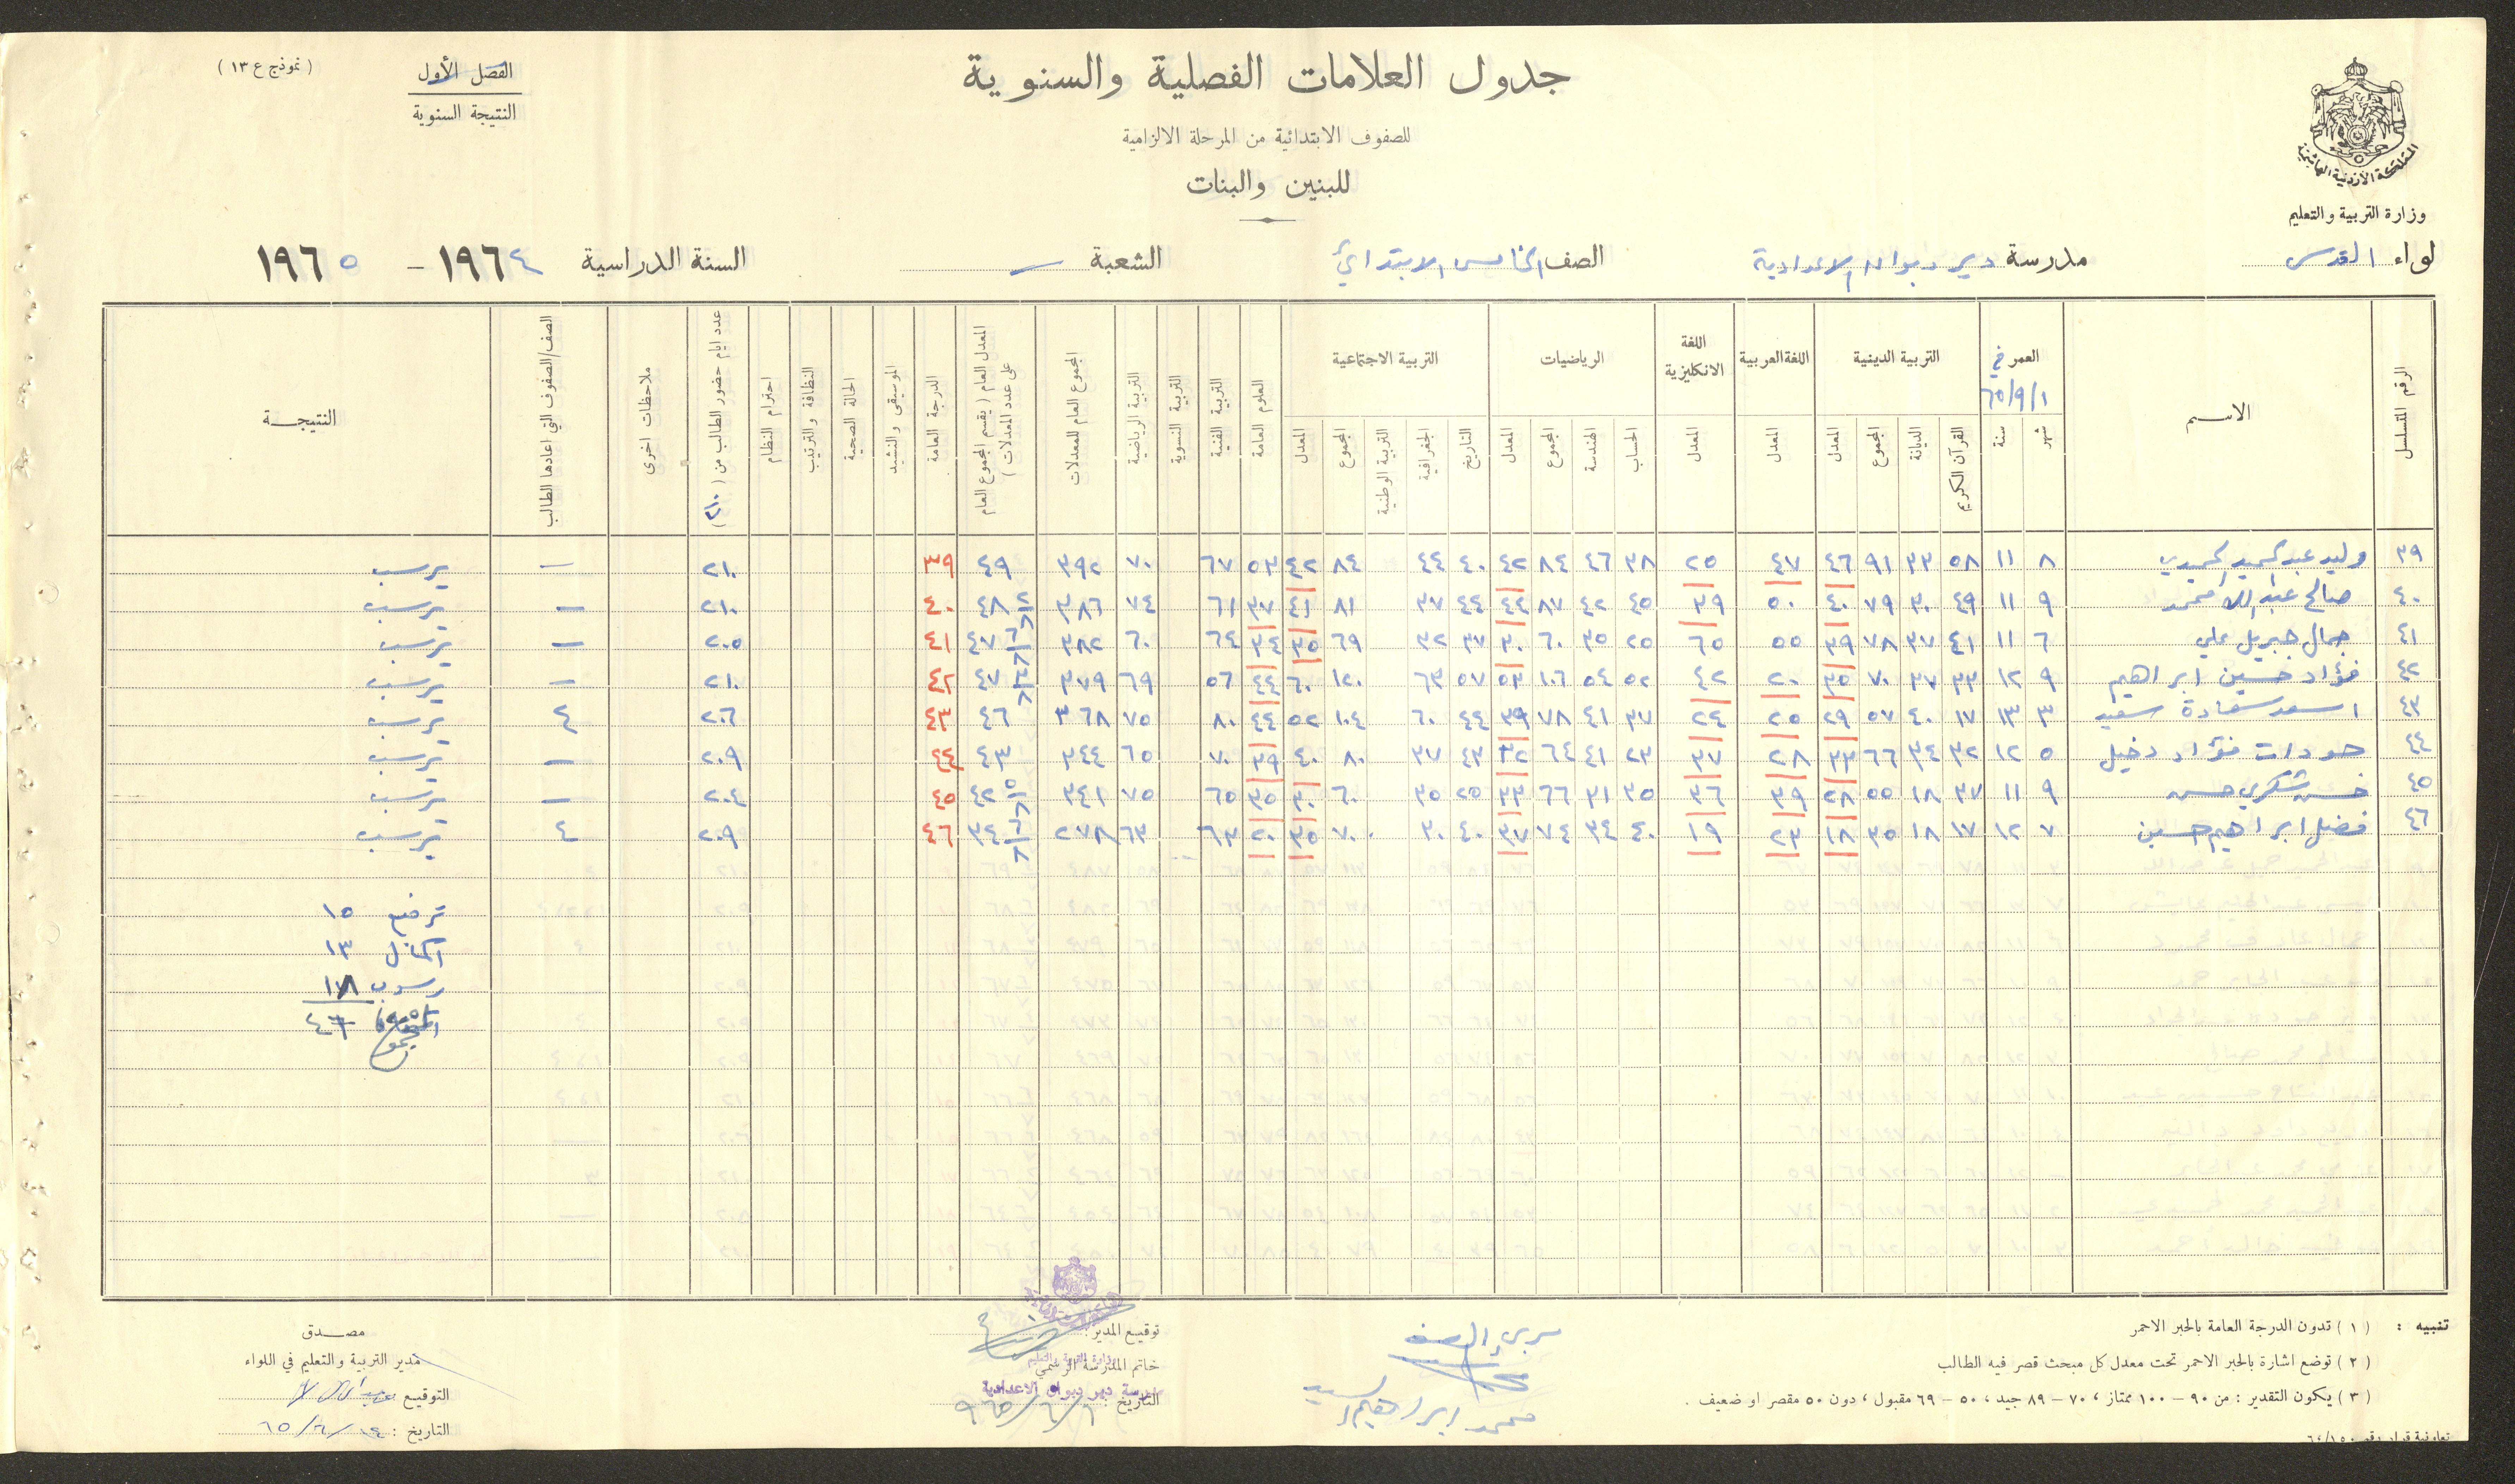 (نموذج ع ١٣)
الفصل الأول
النتيجة السنوية
جدول العلامات الفصلية والسنوية
للصفوف الابتدائية من المرحلة الالزامية
للبنين والبنات
المملكة الأردنية الهاشمية
وزارة التربية والتعليم
لواء القدس مدرسة دير دبوان الاعدادية الصف الخامس الابتدائي الشعبة — السنة الدراسية ١٩٦٤ – ١٩٦٥
الرقم المتسلسل الاسم العمر في ٦٥/٩/١ التربية الدينية اللغة العربية اللغة الانكليزية الرياضيات التربية الاجتماعية العلوم العامة التربية الفنية التربية النسوية التربية الرياضية المجموع العام للمعدلات المعدل العام (يقسم المجموع العام على عدد المعدلات) الدرجة العامة الموسيقى والنشيد الحالة الصحية النظافة والترتيب احترام النظام عدد ايام حضور الطالب من (٢١٠) ملاحظات اخرى الصف/الصفوف التي اعادها الطالب النتيجة
شهر سنة القرآن الكريم الديانة المجموع المعدل المعدل المعدل الحساب الهندسة المجموع المعدل التاريخ الجغرافية التربية الوطنية المجموع المعدل
٣٩ وليد عبد الحميد الحميدي ٨ ١١ ٥٨ ٣٣ ٩١ ٤٦ ٤٧ ٢٥ ٣٨ ٤٦ ٨٤ ٤٢ ٤٠ ٤٤ ٨٤ ٤٢ ٥٣ ٦٧ ٧٠ ٣٩٢ ٤٩ ٣٩ ٢١٠ — يرسب
٤٠ صالح عبد الله محمد ٩ ١١ ٤٩ ٣٠ ٧٩ ٤٠ ٥٠ ٣٩ ٤٥ ٤٢ ٨٧ ٤٤ ٤٤ ٣٧ ٨١ ٤١ ٣٧ ٦١ ٧٤ ٣٨٦ ٤٨ ٤٠ ٢١٠ — يرسب
٤١ جمال جبريل علي ٦ ١١ ٤١ ٣٧ ٧٨ ٣٩ ٥٥ ٦٥ ٢٥ ٣٥ ٦٠ ٣٠ ٣٧ ٣٢ ٦٩ ٣٥ ٣٤ ٦٤ ٦٠ ٣٨٢ ٤٧ ٤١ ٢٠٥ — يرسب
٤٢ فؤاد حسين ابراهيم ٩ ١٢ ٣٣ ٣٧ ٧٠ ٣٥ ٢٠ ٤٢ ٥٢ ٥٤ ١٠٦ ٥٣ ٥٧ ٦٣ ١٢٠ ٦٠ ٤٤ ٥٦ ٦٩ ٣٧٩ ٤٧ ٤٢ ٢١٠ — يرسب
٤٣ اسعد سعادة سعيد ٣ ١٣ ١٧ ٤٠ ٥٧ ٢٩ ٢٥ ٢٤ ٣٧ ٤١ ٧٨ ٣٩ ٤٤ ٦٠ ١٠٤ ٥٢ ٤٤ ٨٠ ٧٥ ٣٦٨ ٤٦ ٤٣ ٢٠٦ ٢ يرسب
٤٤ جودات فؤاد دخيل ٥ ١٢ ٣٢ ٣٤ ٦٦ ٣٣ ٢٨ ٣٧ ٢٣ ٤١ ٦٤ ٣٢ ٤٣ ٣٧ ٨٠ ٤٠ ٣٩ ٧٠ ٦٥ ٣٤٤ ٤٣ ٤٤ ٢٠٩ — يرسب
٤٥ حسن شكري حسن ٩ ١١ ٣٧ ١٨ ٥٥ ٢٨ ٣٩ ٣٦ ٣٥ ٣١ ٦٦ ٣٣ ٢٥ ٣٥ ٦٠ ٣٠ ٣٥ ٦٥ ٧٥ ٣٤١ ٤٢ ٤٥ ٢٠٤ — يرسب
٤٦ فضل ابراهيم حسين ٧ ١٢ ١٧ ١٨ ٣٥ ١٨ ٢٣ ١٩ ٤٠ ٣٤ ٧٤ ٣٧ ٤٠ ٣٠ ٧٠ ٣٥ ٢٠ ٦٣ ٦٣ ٢٧٨ ٣٤ ٤٦ ٢٠٩ ٤ يرسب
ترفيع ١٥
اكمال ١٣
رسوب ١٨
المجموع ٤٦
تنبيه : (١) تدون الدرجة العامة بالحبر الاحمر
(٢) توضع اشارة بالحبر الاحمر تحت معدل كل مبحث قصر فيه الطالب
(٣) يكون التقدير : من ٩٠ – ١٠٠ ممتاز ، ٧٠ – ٨٩ جيد ، ٥٠ – ٦٩ مقبول ، دون ٥٠ مقصر او ضعيف .
مربي الصف
محمد ابراهيم السيد
توقيع المدير :
خاتم المدرسة الرسمي
وزارة التربية والتعليم
مدرسة دير ديوان الاعدادية
التاريخ : ٩٦٥/٦/٦
مصدق
مدير التربية والتعليم في اللواء
التوقيع
التاريخ : ٦٥/٦/١٤